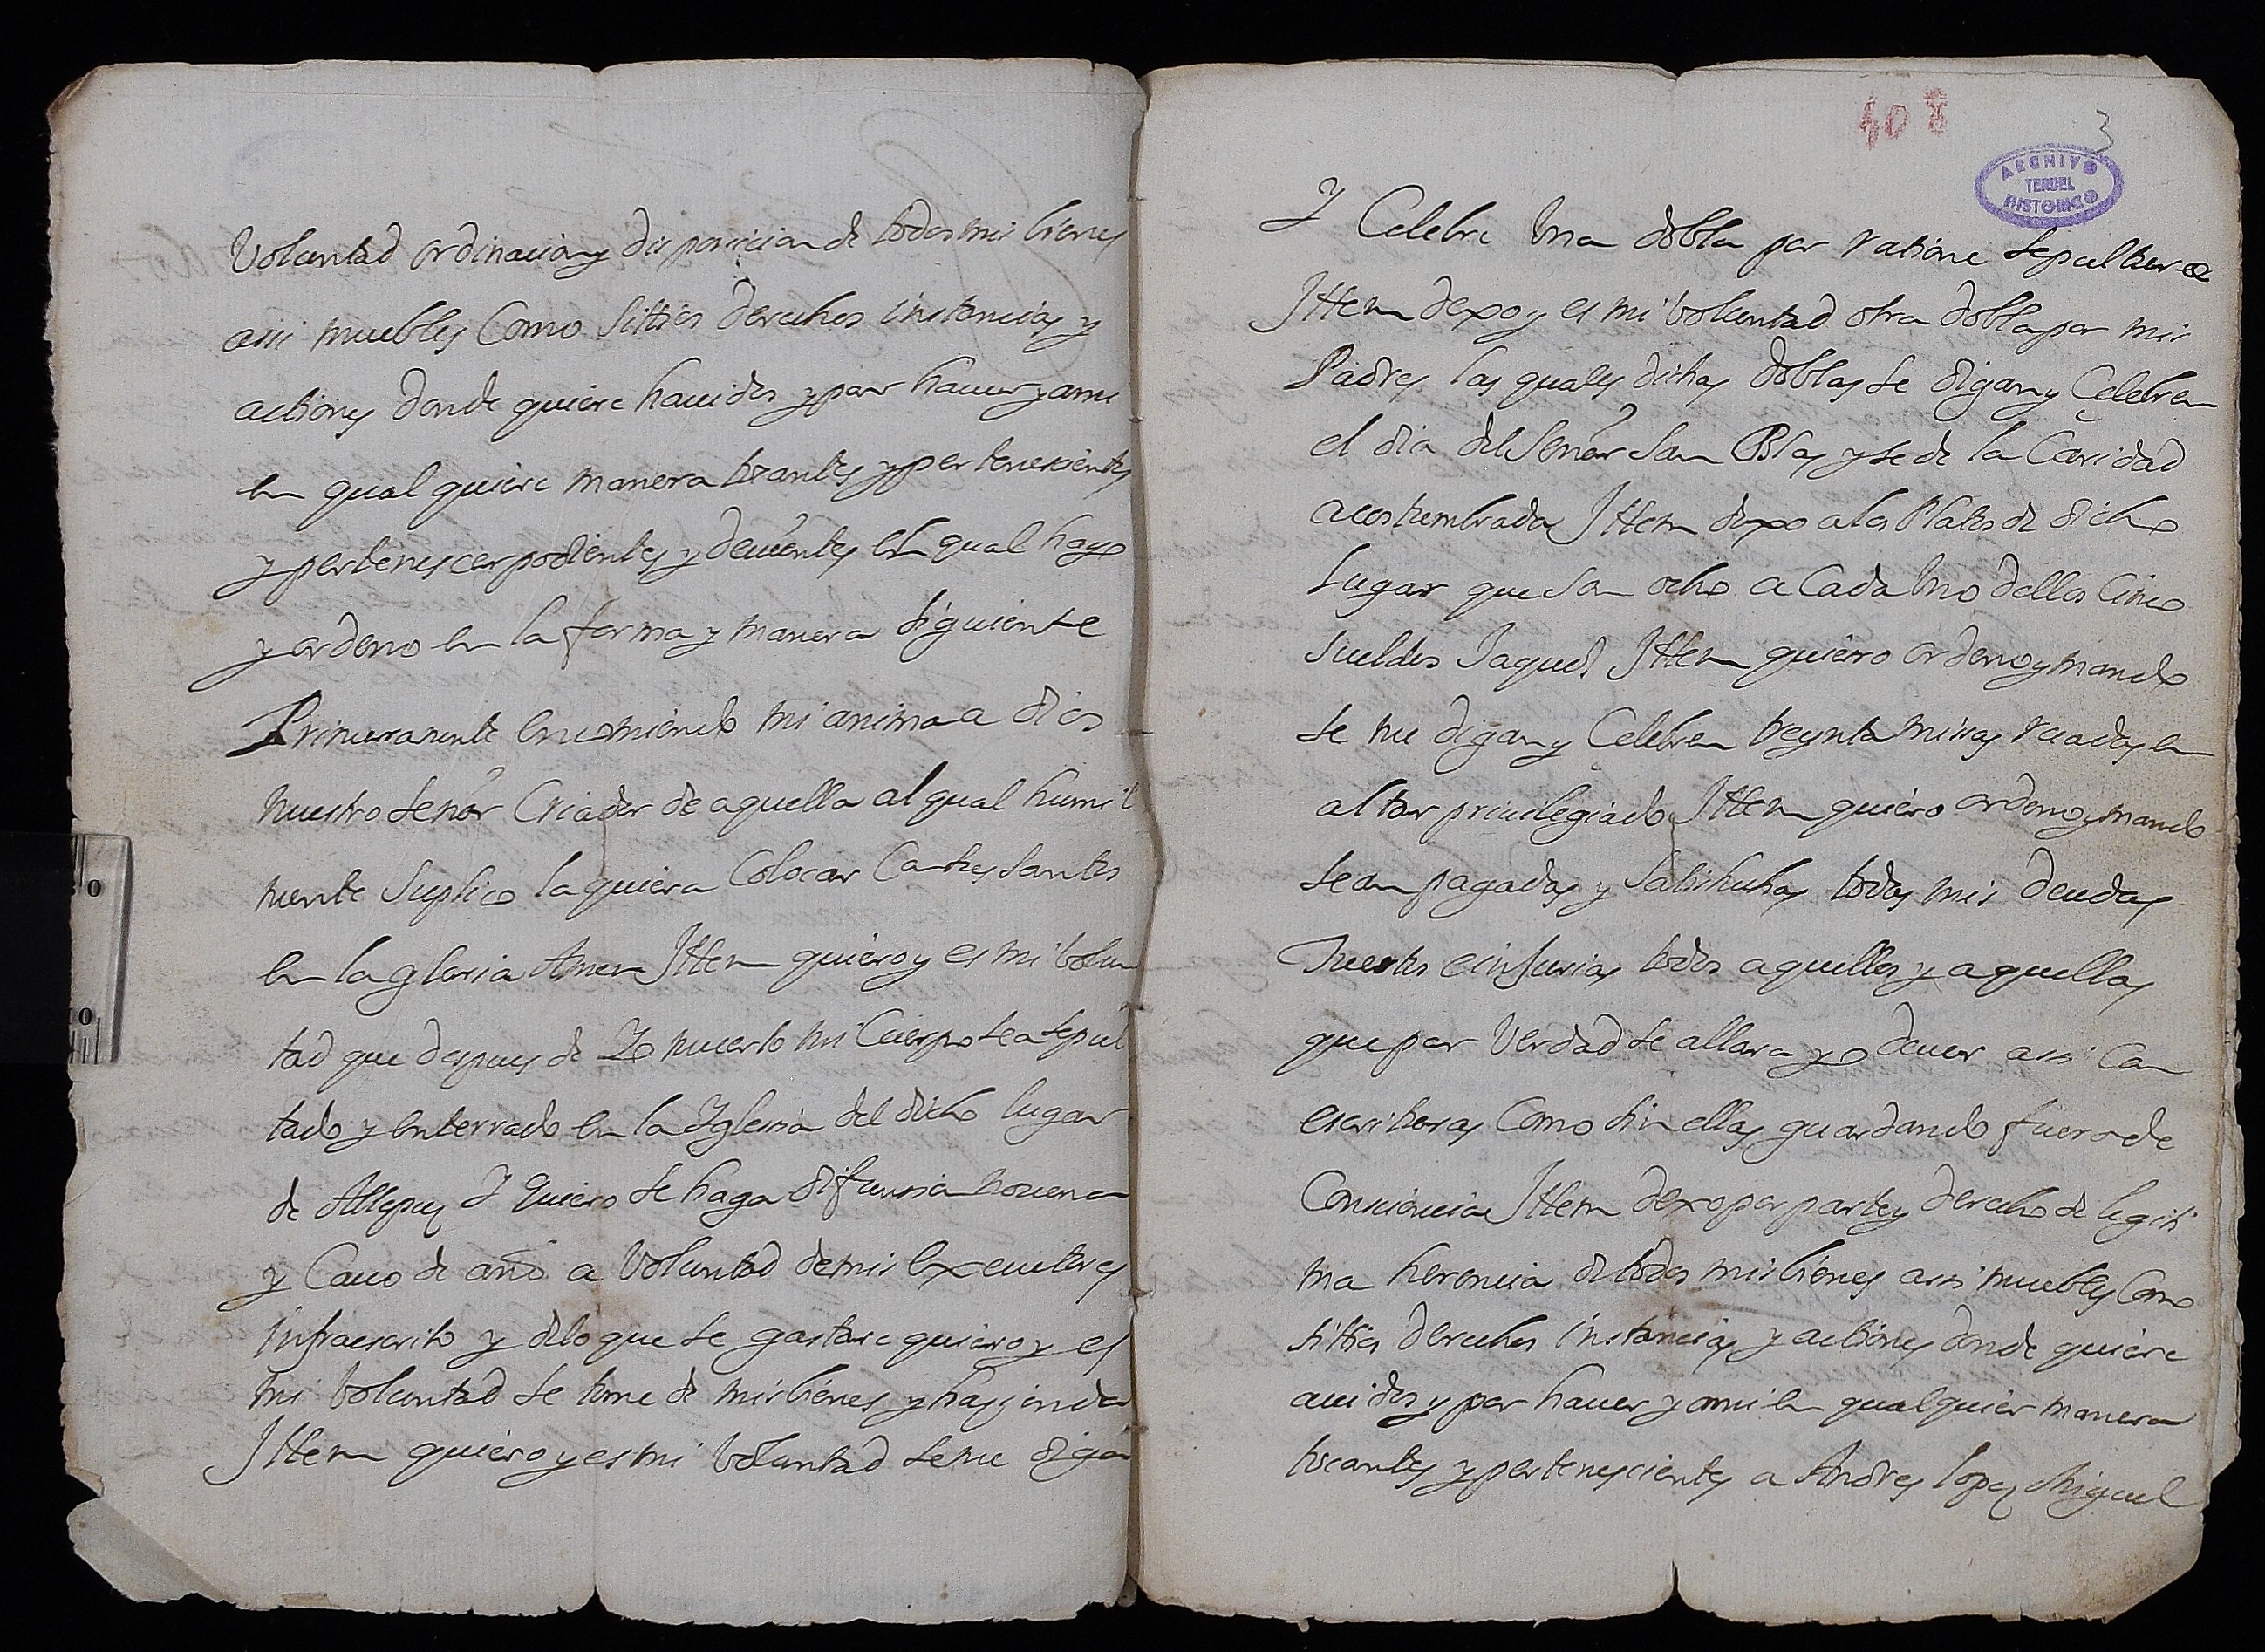 Voluntad ordinacion y disposicion de todos mis bienes
assi muebles Como Sittios derechos instancias y
actiones donde quiere hauidos y por hauer y a mi
en qual quiere manera tocantes y pertenescientes
y pertenescer podientes y deuientes el qual hago
y ordeno en la forma y manera siguiente
Primeramente encomiendo mi anima a dios
nuestro señor Criador de aquella al qual humil
mente Suplico la quiera Colocar Con sus santos
en la gloria Amen Ittem quiero y es mi volun
tad que despues de Yo muerto mi Cuerpo sea sepul
tado y enterrado en la Yglesia del dicho lugar
de Allepuz Y quiero se haga difunsia nouena
y Cauo de año a Voluntad de mis Executores
infraescrito y de lo que se gastare quiero y es
mi voluntad se tome de mis bienes y hazienda
Ittem quiero y es mi voluntad se me diga
408
3
ARCHIVO
TERUEL
HISTORICO
Y Celebre Vna dobla por ratione sepulturæ
Ittem dexo y es mi voluntad otra dobla por mis
Padres las quales dichas doblas se digan y Celebren
el dia del Señor San Blas y se de la Caridad
acostumbrada Ittem dexo a los Platos de dicho
lugar que son ocho a Cada Vno dellos Cinco
sueldos Jaques Ittem quiero ordeno y mando
se me digan y Celebren treynta missas rezadas en
altar priuilegiado Ittem quiero ordeno y mando
sean pagadas y Satisfechas todas mis deudas
Tuertos e injurias todos aquellos y aquellas
que por Verdad se allara yo deuer assi Con
escrituras Como sin ellas guardando fuero de
Consciencia Ittem dexo por parte y derecho de legiti
ma herencia de todos mis bienes assi muebles Como
sittios derechos instancias y actiones donde quiere
auidos y por hauer y a mi en qualquier manera
tocantes y pertenescientes a Andres lopez Miguel